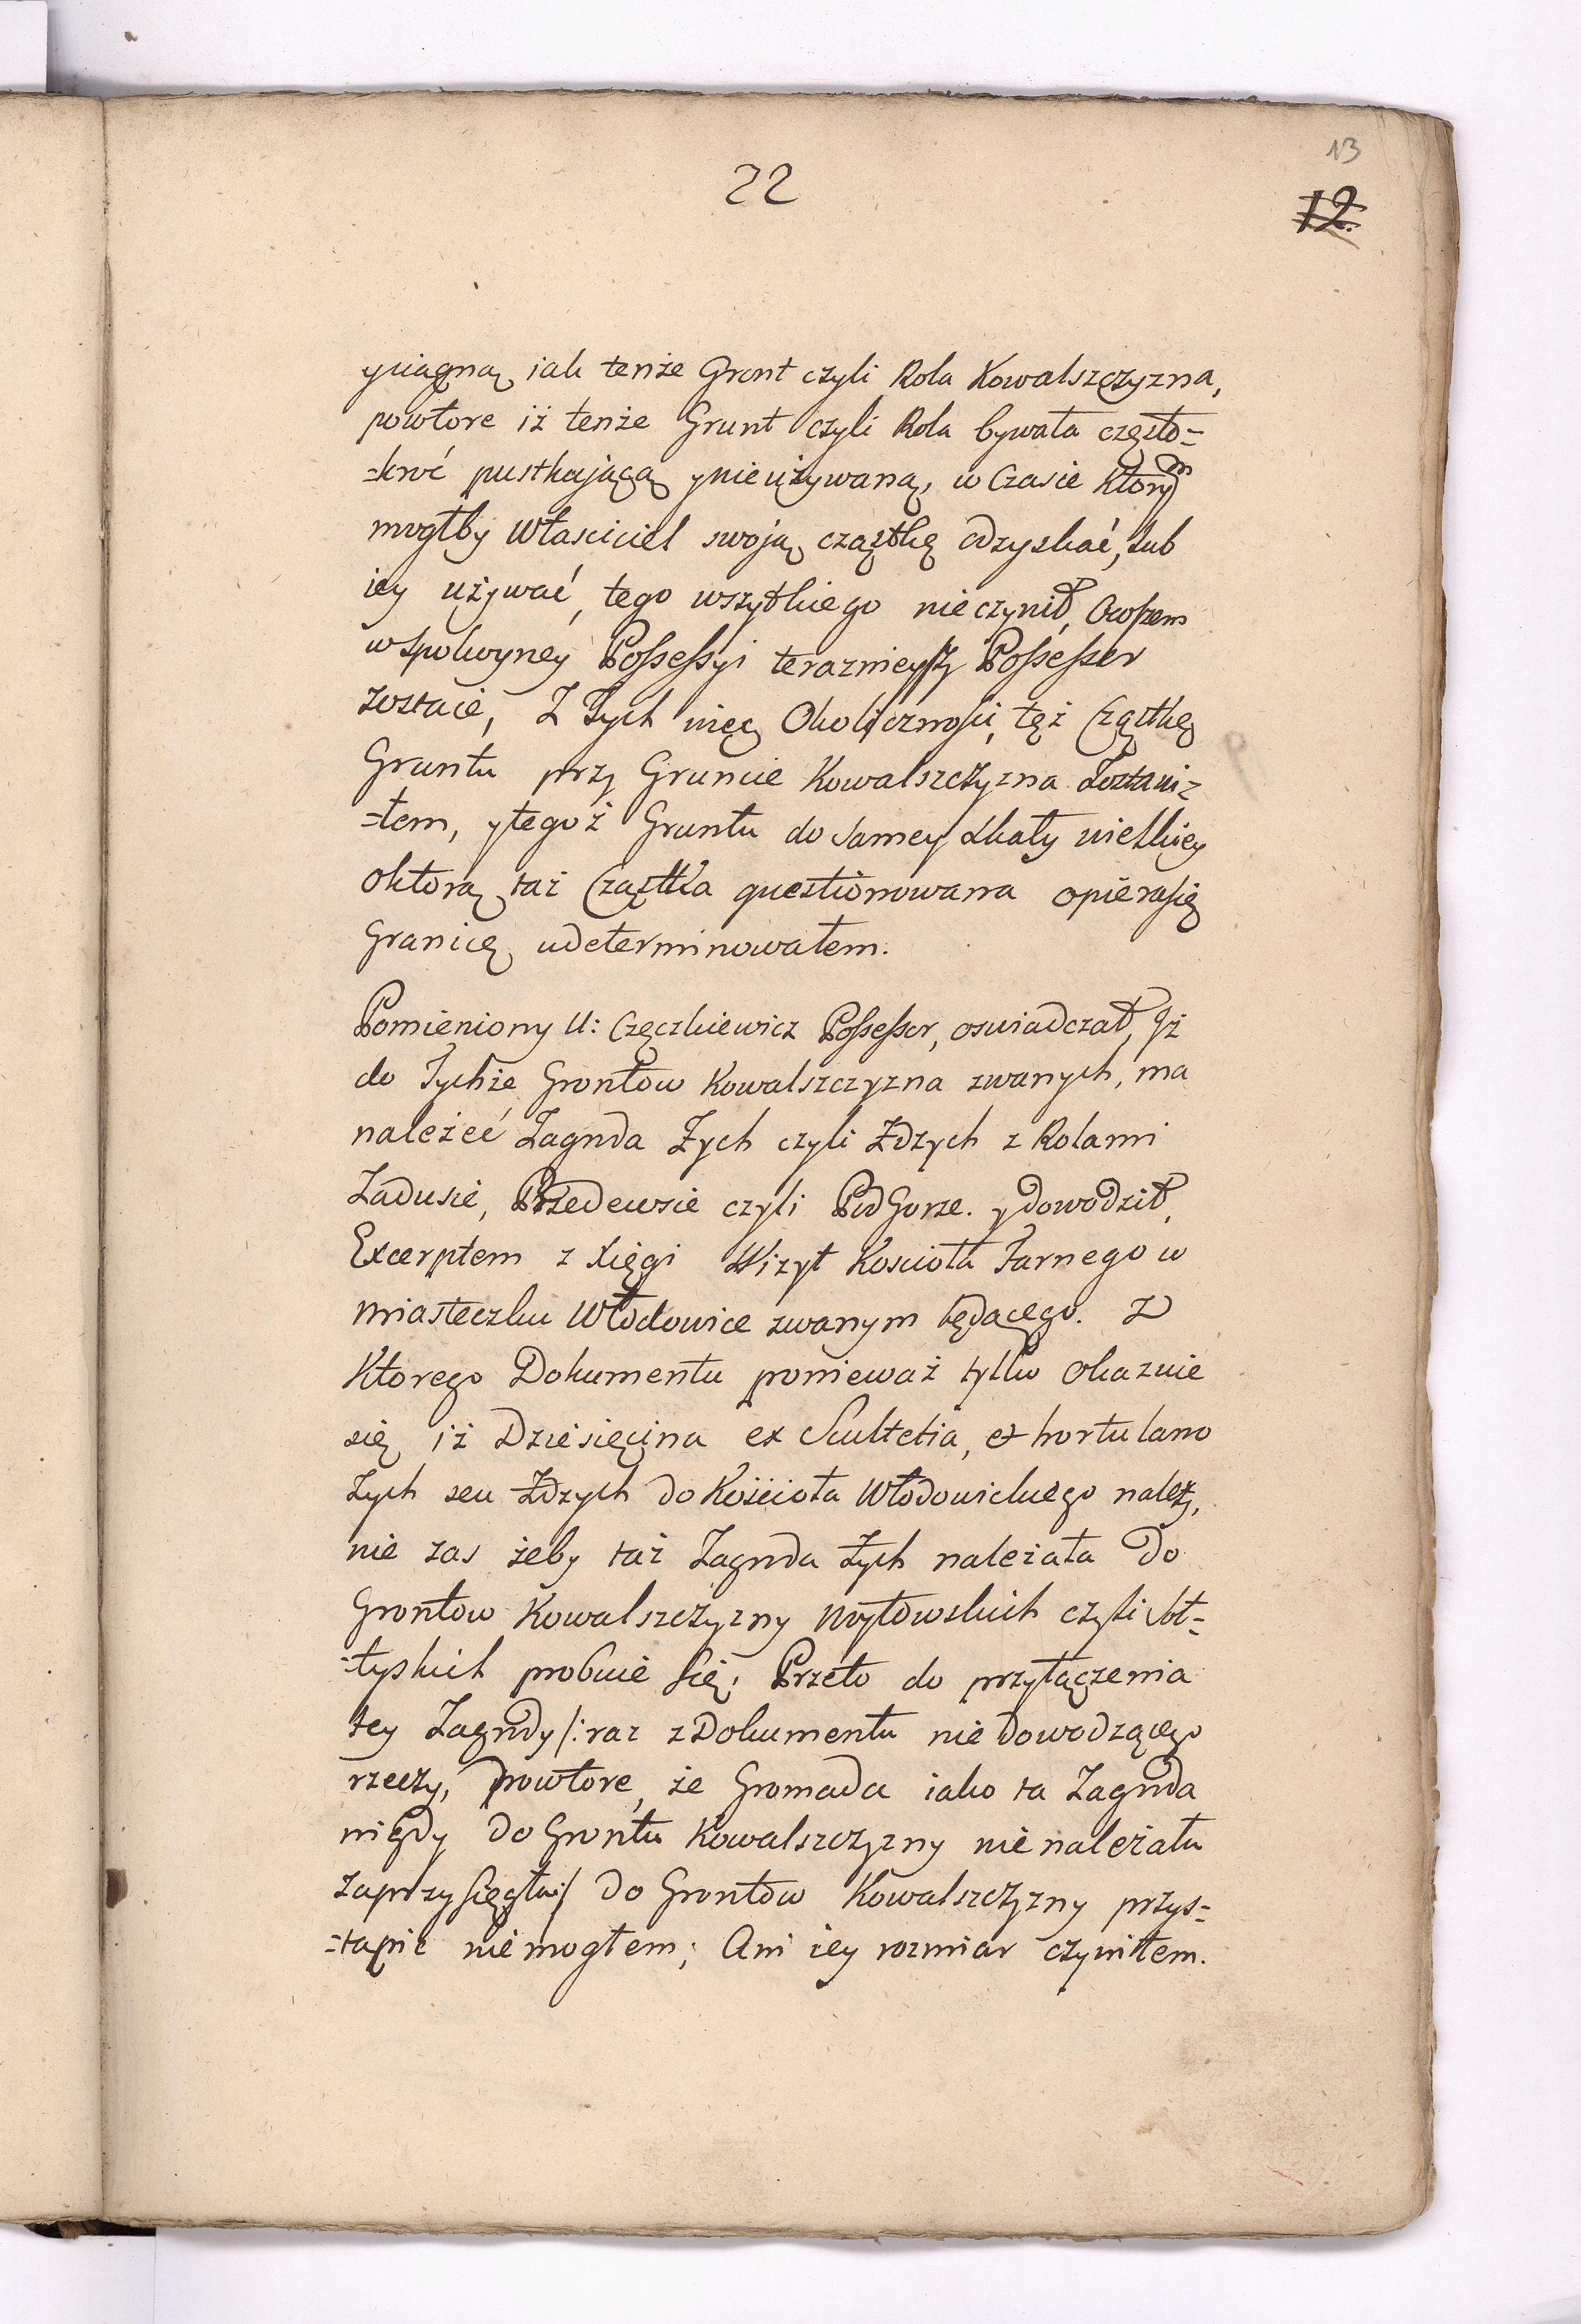 13
22
12.
yciągną iak tenże Gront czyli Rola Kowalszczyzna,
powtore iż tenże Grunt czyli Rola bywała często=
=kroć pustkającą y nieużywaną, w Czasie ktorym
mogłby Własciciel swoją cząstkę odzyskać, lub
iey używać, tego wszytkiego nie czynił, Owszem
w spokoyney Possessyi teraznieyszy Possessor
zostaie, Z Tych więc Okolicznosci, tęż Cząstkę
Gruntu przy Gruncie Kowalszczyzna Zostawi=
=łem, y tegoż Gruntu do samey skały wielkiey
oktorą taż Cząstka questionowana opiera się
Granicę udeterminowałem.
Pomieniony U: Częczkiewicz Possessor, oswiadczał, Iż
do Tychże Grontow Kowalszczyzna zwanych, ma
należeć Zagroda Zych czyli Zdzych z Rolami
Zadusie, Przedewsie czyli PodGorze. y dowodził,
Excerptem z Xięgi Wizyt Kosciołа Farnego w
miasteczku Włodowice zwanym będącego. Z
Ktorego Dokumentu ponieważ tylko Okazuie
się iż Dziesięcina ex Scultetia, et hortulano
Zych seu Zdzych do Kościoła Włodowickiego należy,
nie zas żeby taż Zagroda Zych należała Do
Grontow Kowalszczyzny Woytowskich czyli Soł=
=tyskich probuie się; Przeto do przyłączenia
tey Zagrody /: raz z Dokumentu nie dowodzącego
rzeczy, powtore, że Gromada iako ta Zagroda
nigdy do Grontu Kowalszczyzny nie należała
zaprzysięgła :/ do Grontow Kowalszczyzny przys=
=tąpić nie mogłem; Ani iey rozmiar czyniłem.